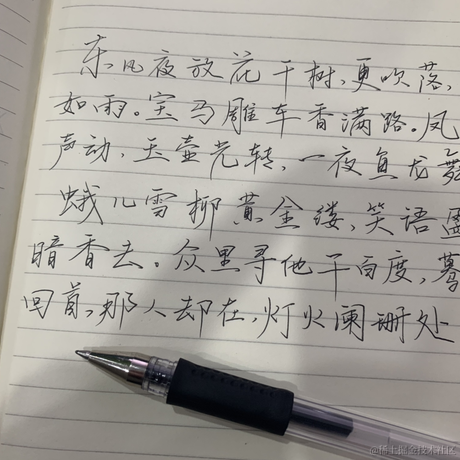 东风夜放花千树，更吹落，
如雨。宝马雕车香满路。凤
声动，玉壶光转，一夜鱼龙舞
蛾儿雪柳黄金缕，笑语盈
暗香去。众里寻他千百度，蓦
回首，那人却在，灯火阑珊处
@稀土掘金技术社区